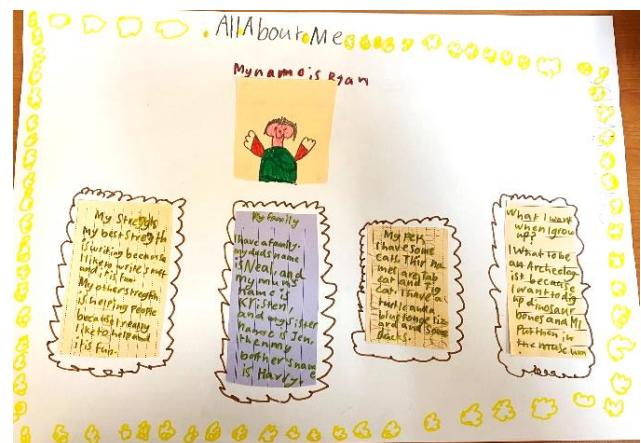 All About Me
My name is Ryan
My Stregths
my best Strength
is writing because
I like to write
and it's fun.
My other strength
is helping people
because I really
like to help and
it is fun.
My family
I have a family.
my dad's name
is Neal, and
my mum's
name is
Kristen,
and my sister
name is Jen,
then my
bother's name
is Harvy.
My Pets
I have some
cats. Thir na
mes are Tab
cat and Tig
cat. I have a
turtle and a
blue tongue liz
ard and some
ducks.
What I want
when I grow
up?
I What To be
an Archeolog
ist because
I want to dig
up dinosaur
bones and
Put them in
the museum